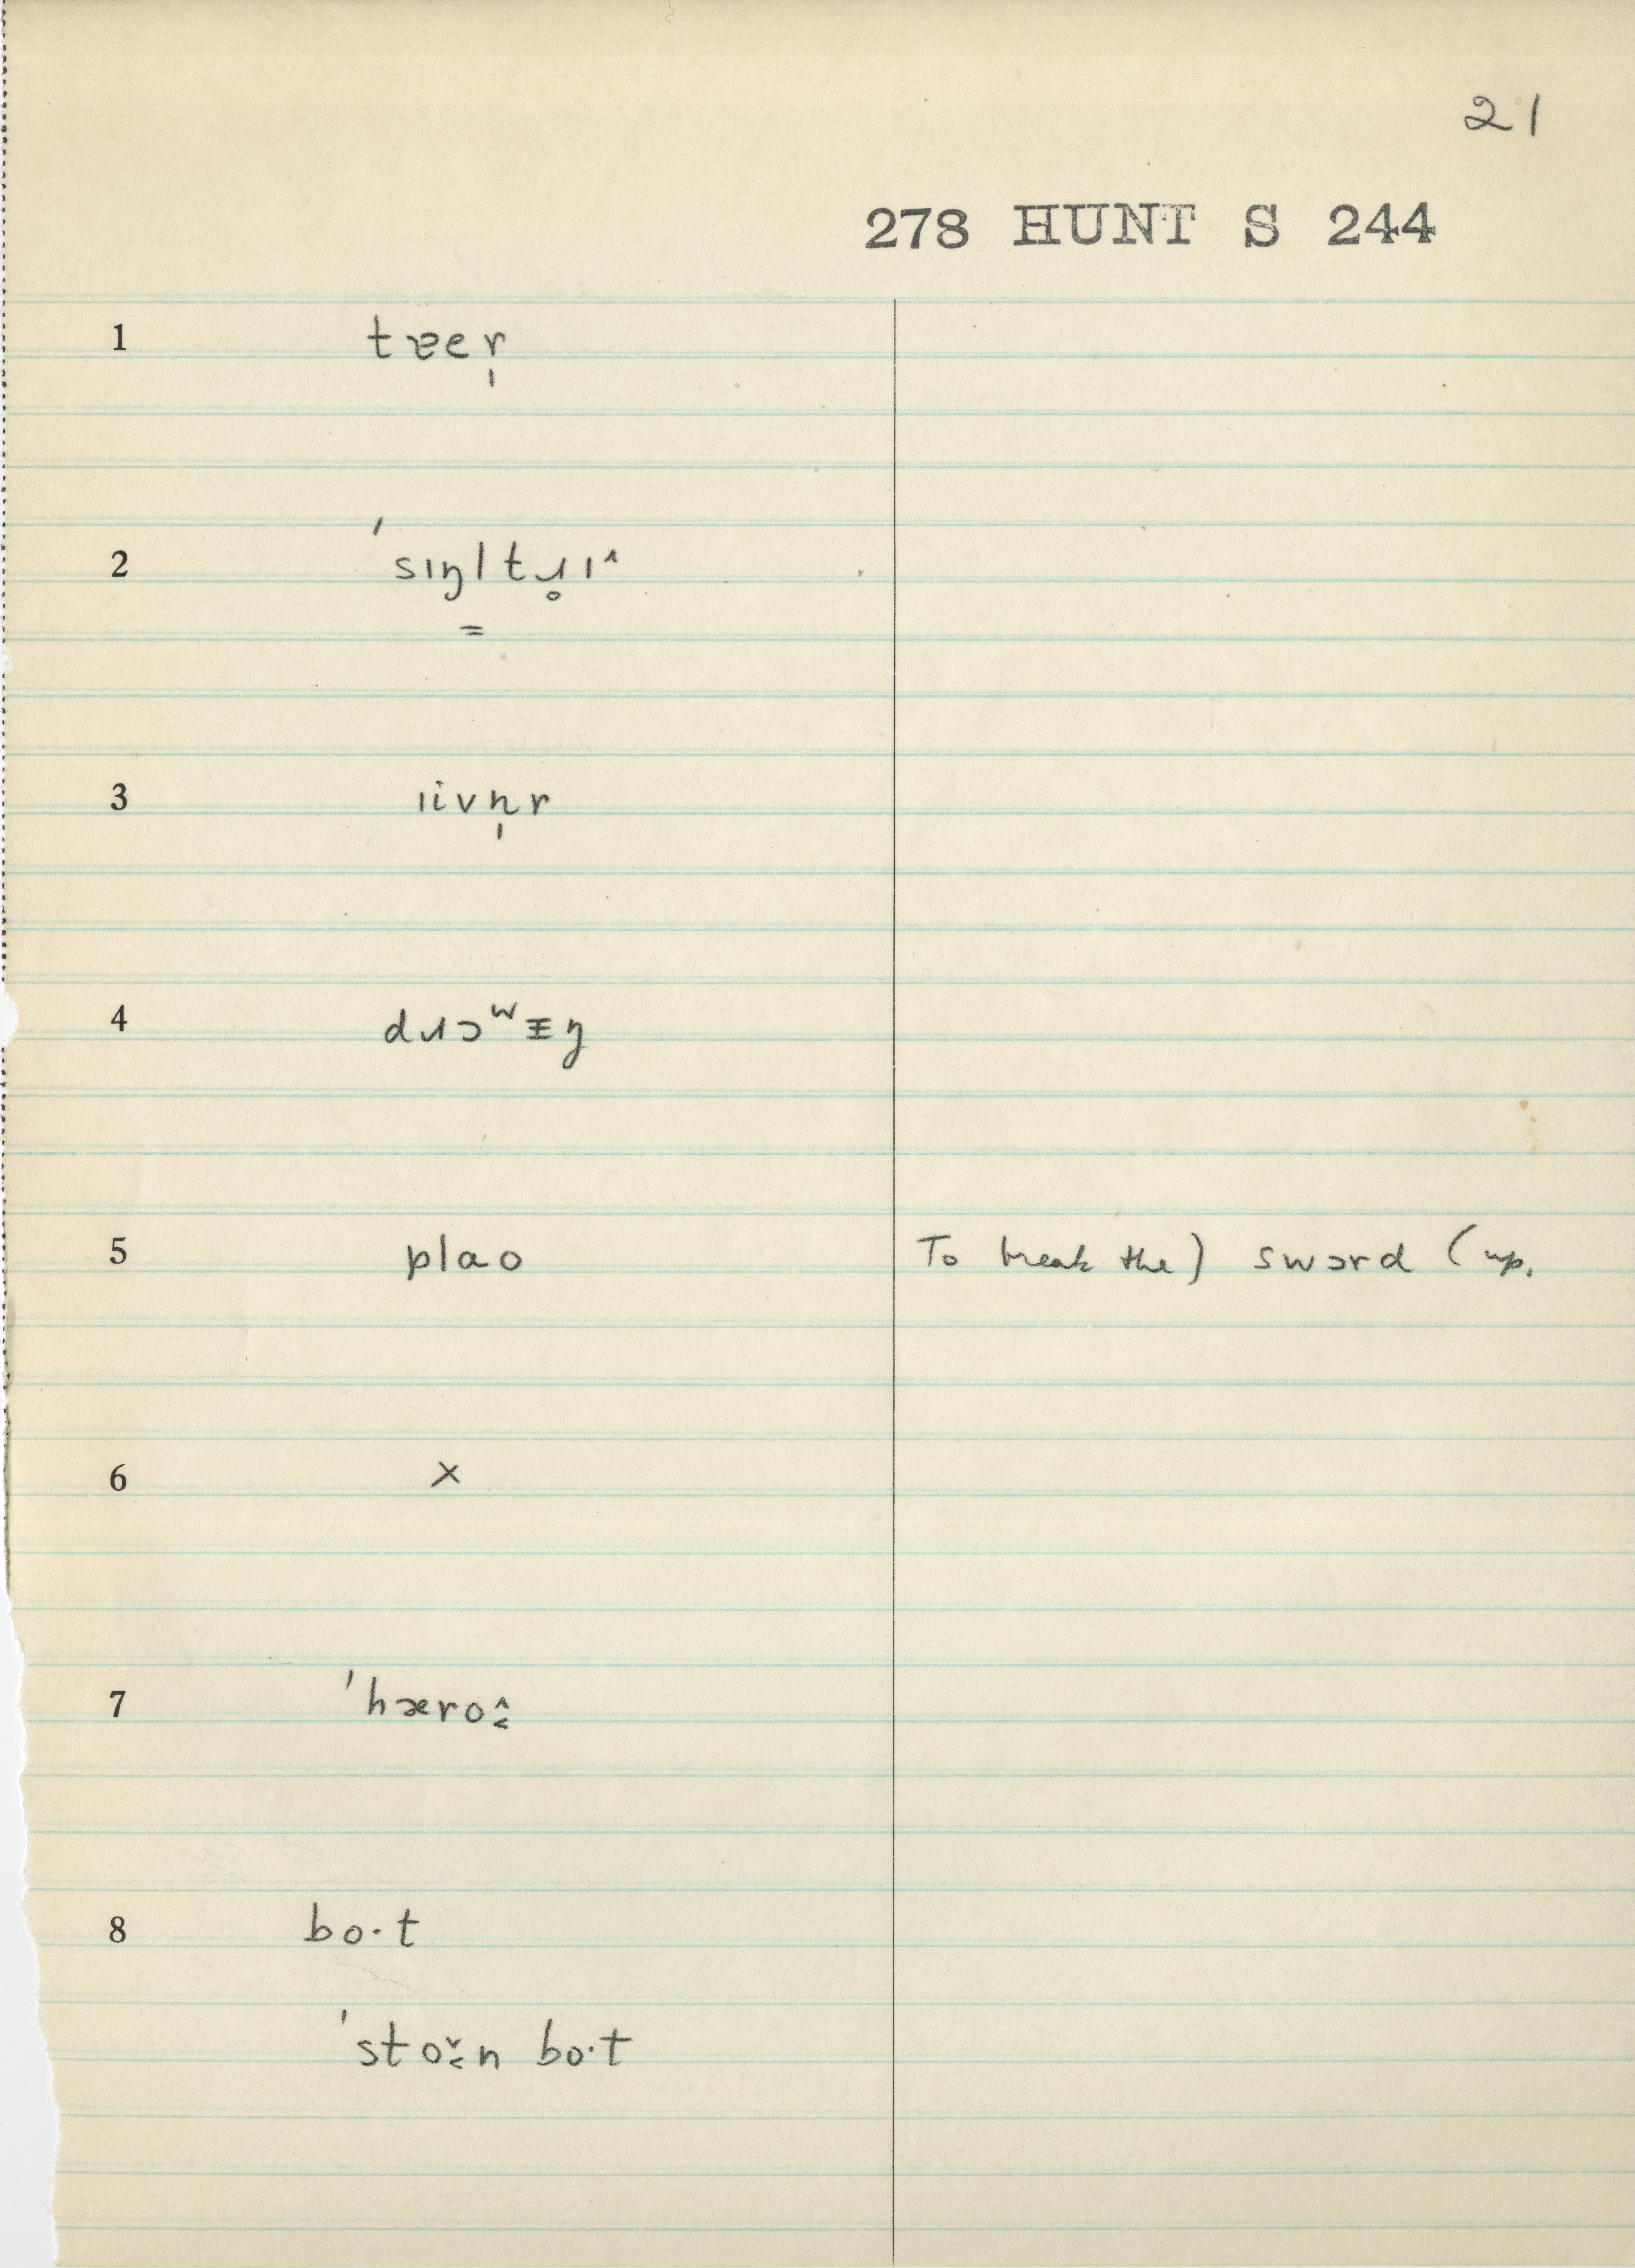 21
278 HUNT S 244
1 tɐer̩
2 ˈsɪŋltɹ̥ɪ^
3 ɪivn̩r
4 dɹɔʷᵻŋ
5 plao To break the) swɔrd (up.
6 x
7 ˈhæroˆ˂
8 bo·t
ˈstoˇ˂n bo·t